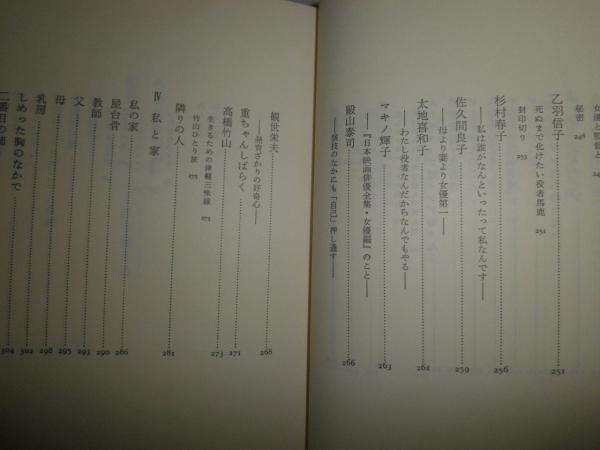 女優と監督と
秘密 248
乙羽信子 251
死ぬまで化けたい役者馬鹿 251
封印切り 253
杉村春子 256
——私は誰がなんといったって私なんです——
佐久間良子 259
——母より妻より女優第一——
太地喜和子 261
——わたし役者なんだからなんでもやる——
マキノ輝子 263
——『日本映画俳優全集・女優編』のこと——
殿山泰司 266
——演技のなかにも「自己」押し通す——
観世栄夫 268
——発育ざかりの好奇心——
重ちゃんしばらく 271
高橋竹山 273
生きるための津軽三味線 273
竹山ひとり旅
隣りの人 281
Ⅳ 私と家
私の家 286
屋台骨 290
教師 293
父 295
母 298
乳房 302
しめった胸のなかで 304